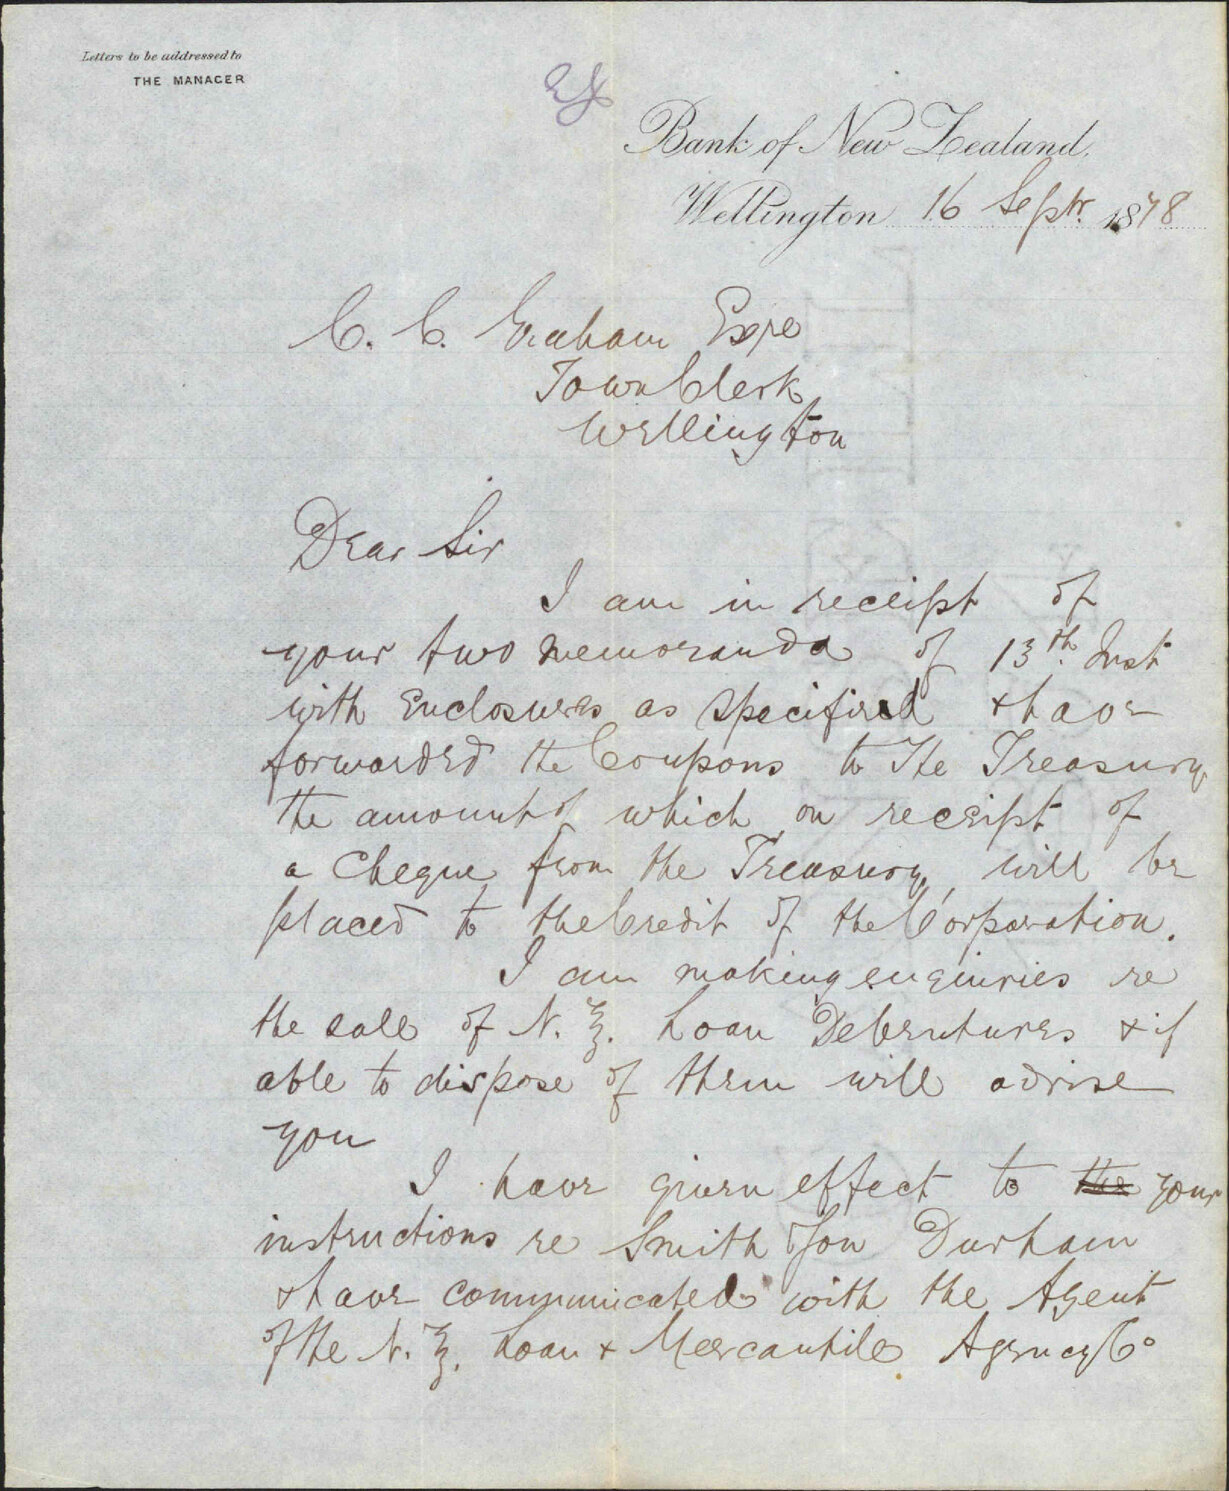 Letters to be addressed to
THE MANAGER
Bank of New Zealand.
Wellington 16 Septr. 1878
C. C. Graham Esqre
Town Clerk
Wellington
Dear Sir
I am in receipt of
your two memoranda of 13th. Inst
with Enclosures as specified & have
forwarded the Coupons to The Treasury
the amount of which on receipt of
a Cheque from the Treasury, will be
placed to the Credit of the Corporation.
I am making enquiries re
the sale of N. Z. Loan Debentures & if
able to dispose of them will advise
you
I have given effect to the your
instructions re Smith Durham
& have communicated with the Agent
of the N. Z. Loan & Mercantile Agency Co